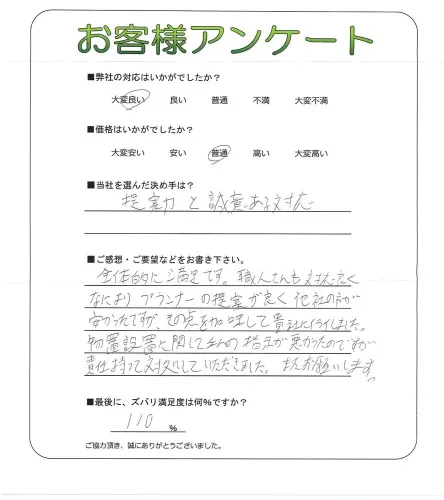 お客様アンケート
■弊社の対応はいかがでしたか?
大変良い 良い 普通 不満 大変不満
■価格はいかがでしたか?
大変安い 安い 普通 高い 大変高い
■当社を選んだ決め手は?
提案力と誠意ある対応
■ご感想・ご要望などをお書き下さい。
全体的に満足です。職人さんも対応良く
なにより プランナーの提案が良く 他社の方が
安かったですが、その点を加味して貴社にイライしました。
物置設置に関して 私の指示が悪かったのですが
責任持って対処していただきました。またお願いします
■最後に、ズバリ満足度は何%ですか?
110 %
ご協力頂き、誠にありがとうございました。